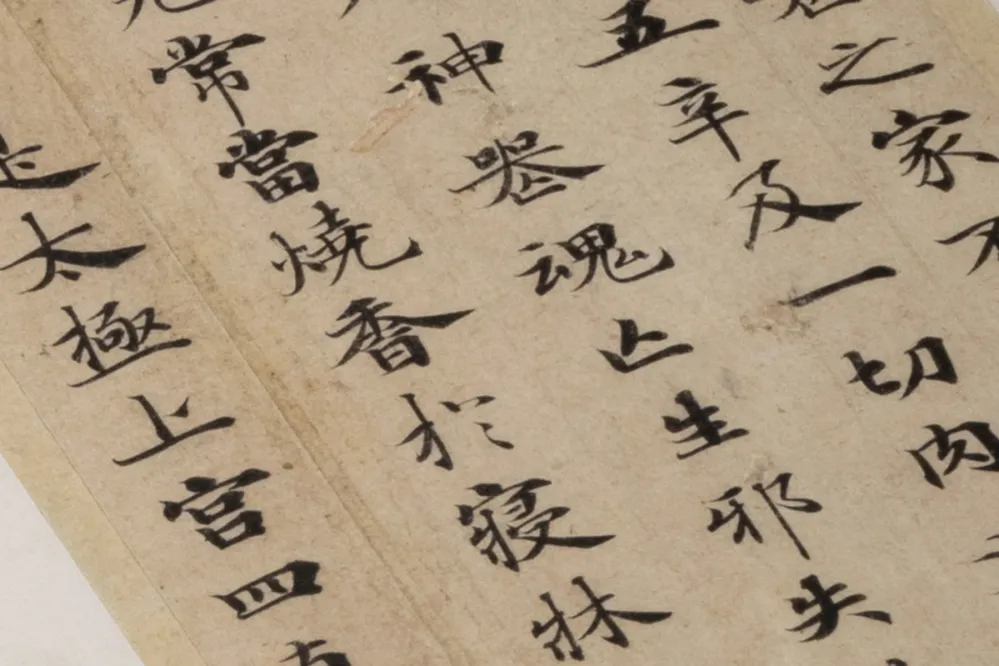 之家不
五辛及一切肉
神喪魂亡生邪失
常當燒香於寢牀
太極上宮四